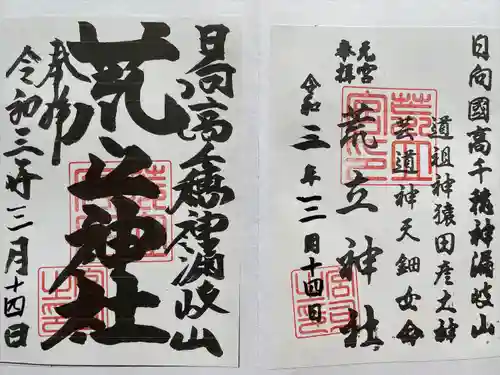 日向高千穂神漏岐山
奉拝
荒立神社
令和三年三月十四日
日向國高千穂神漏岐山
道祖神猿田彦大神
芸道神天鈿女命
元宮
奉拝
荒立神社
令和三年三月十四日